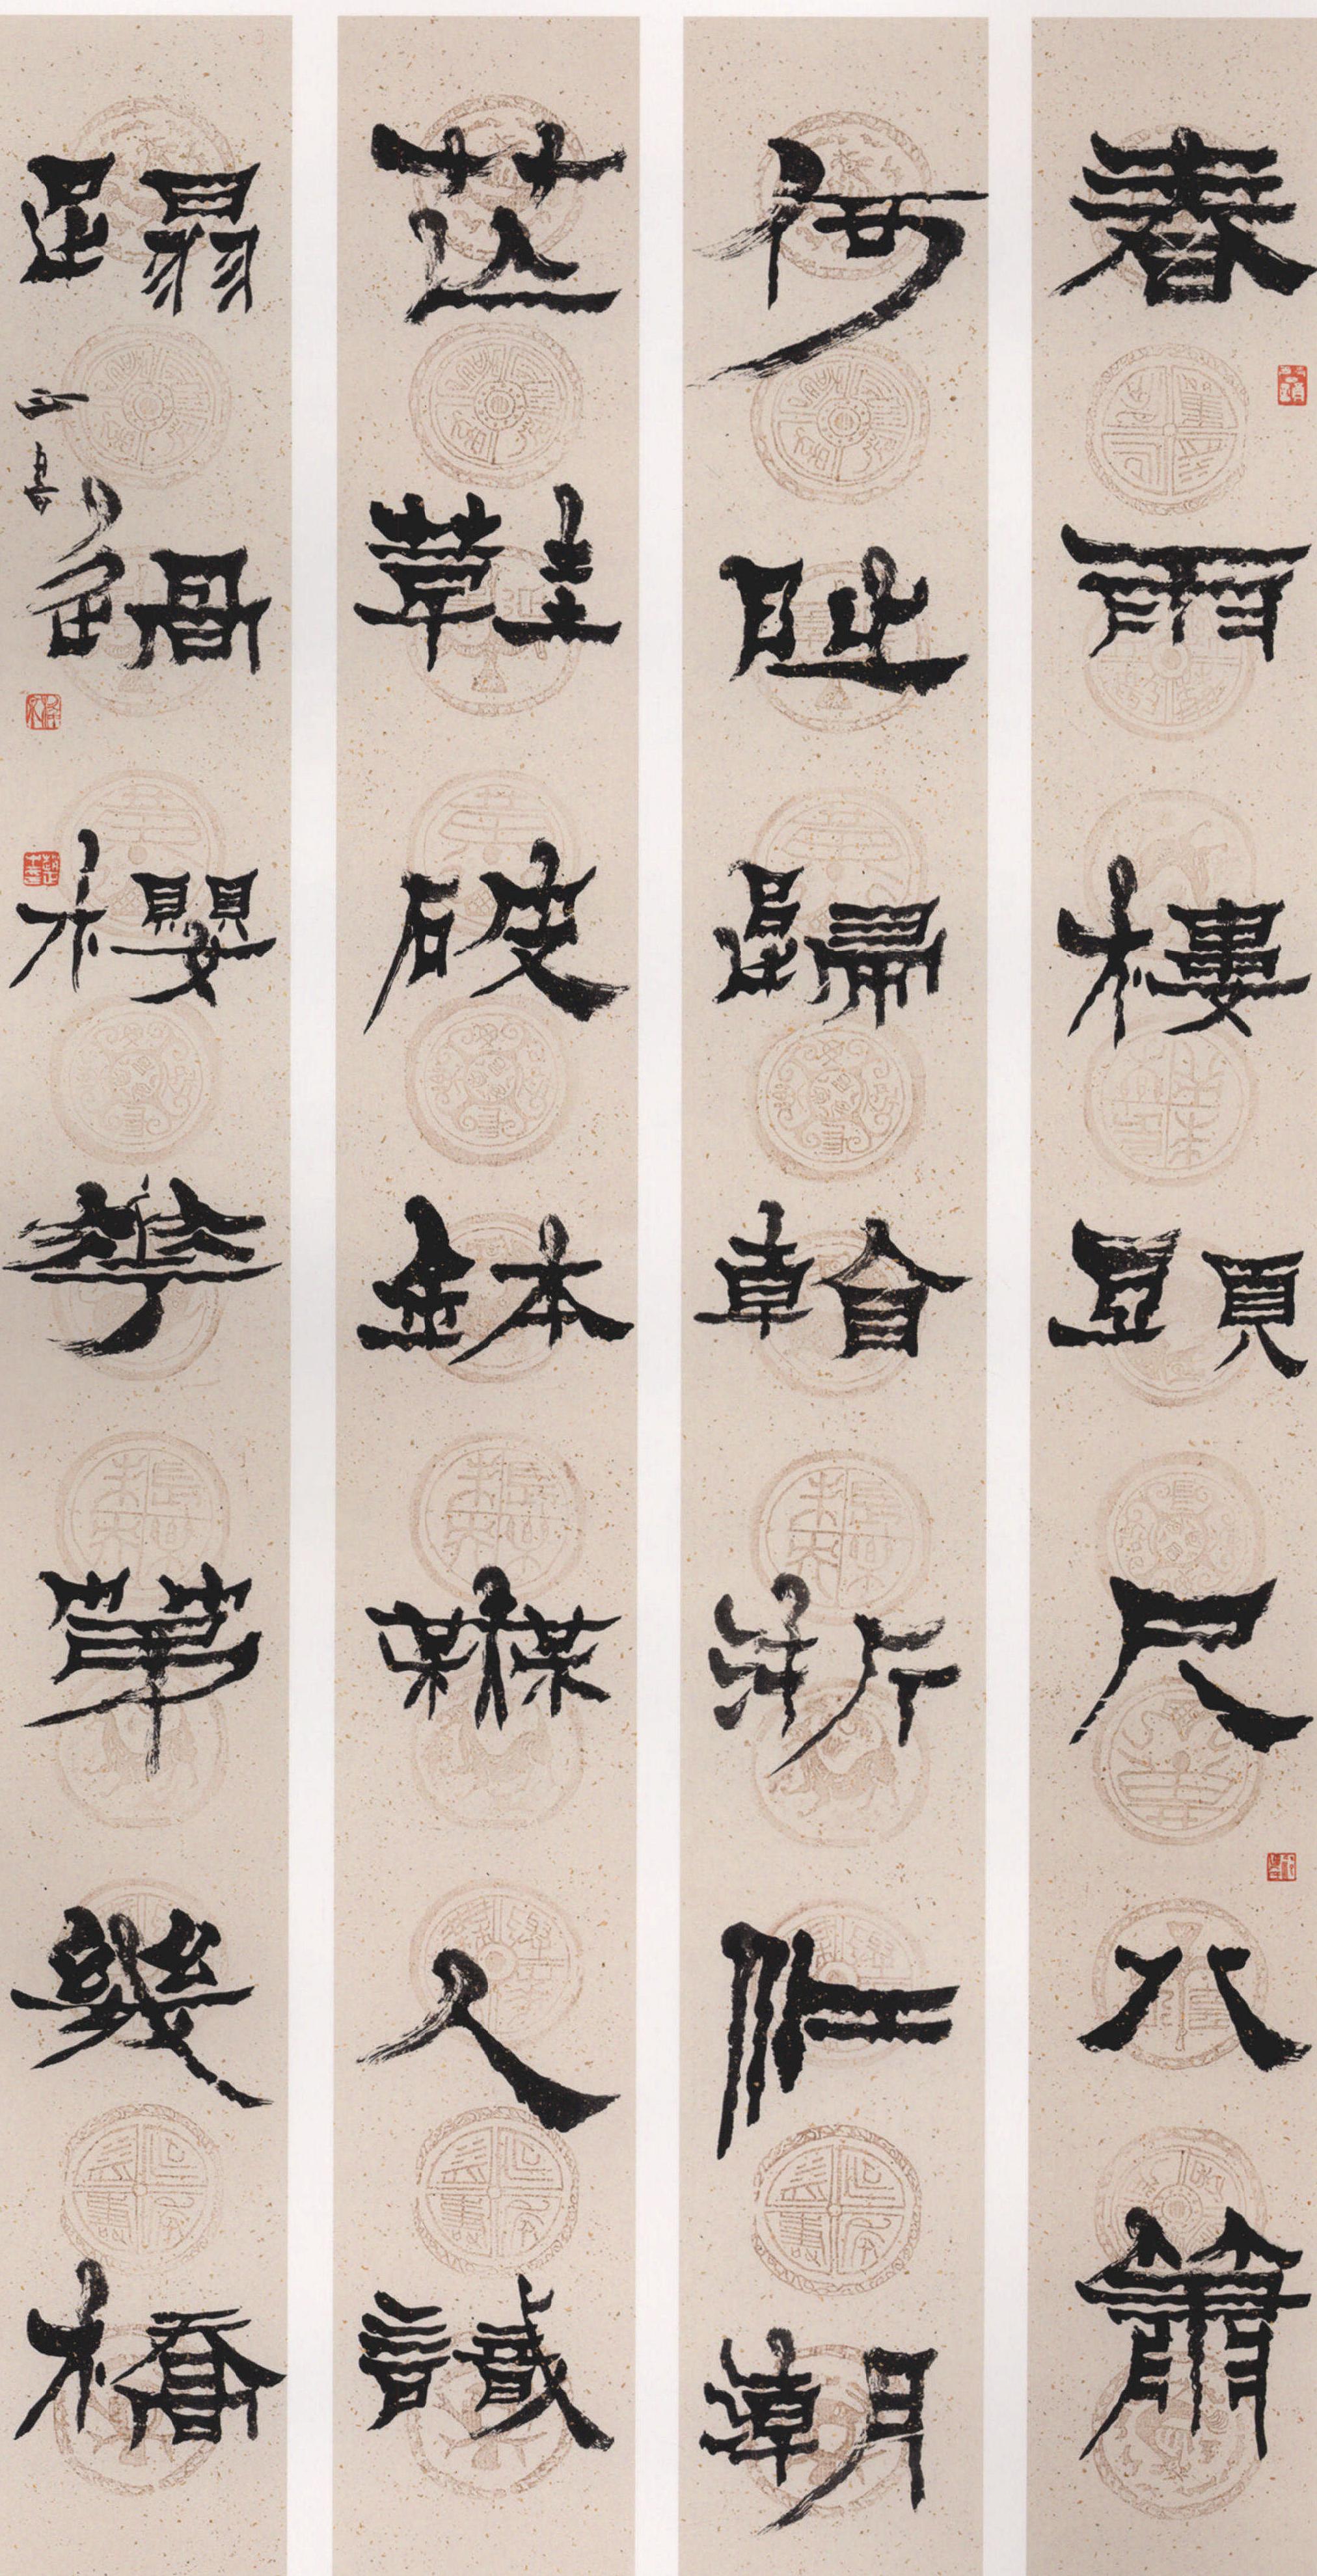 春雨樓頭尺八簫
何時歸看浙江潮
芒鞋破鉢無人識
踏過櫻花第幾橋